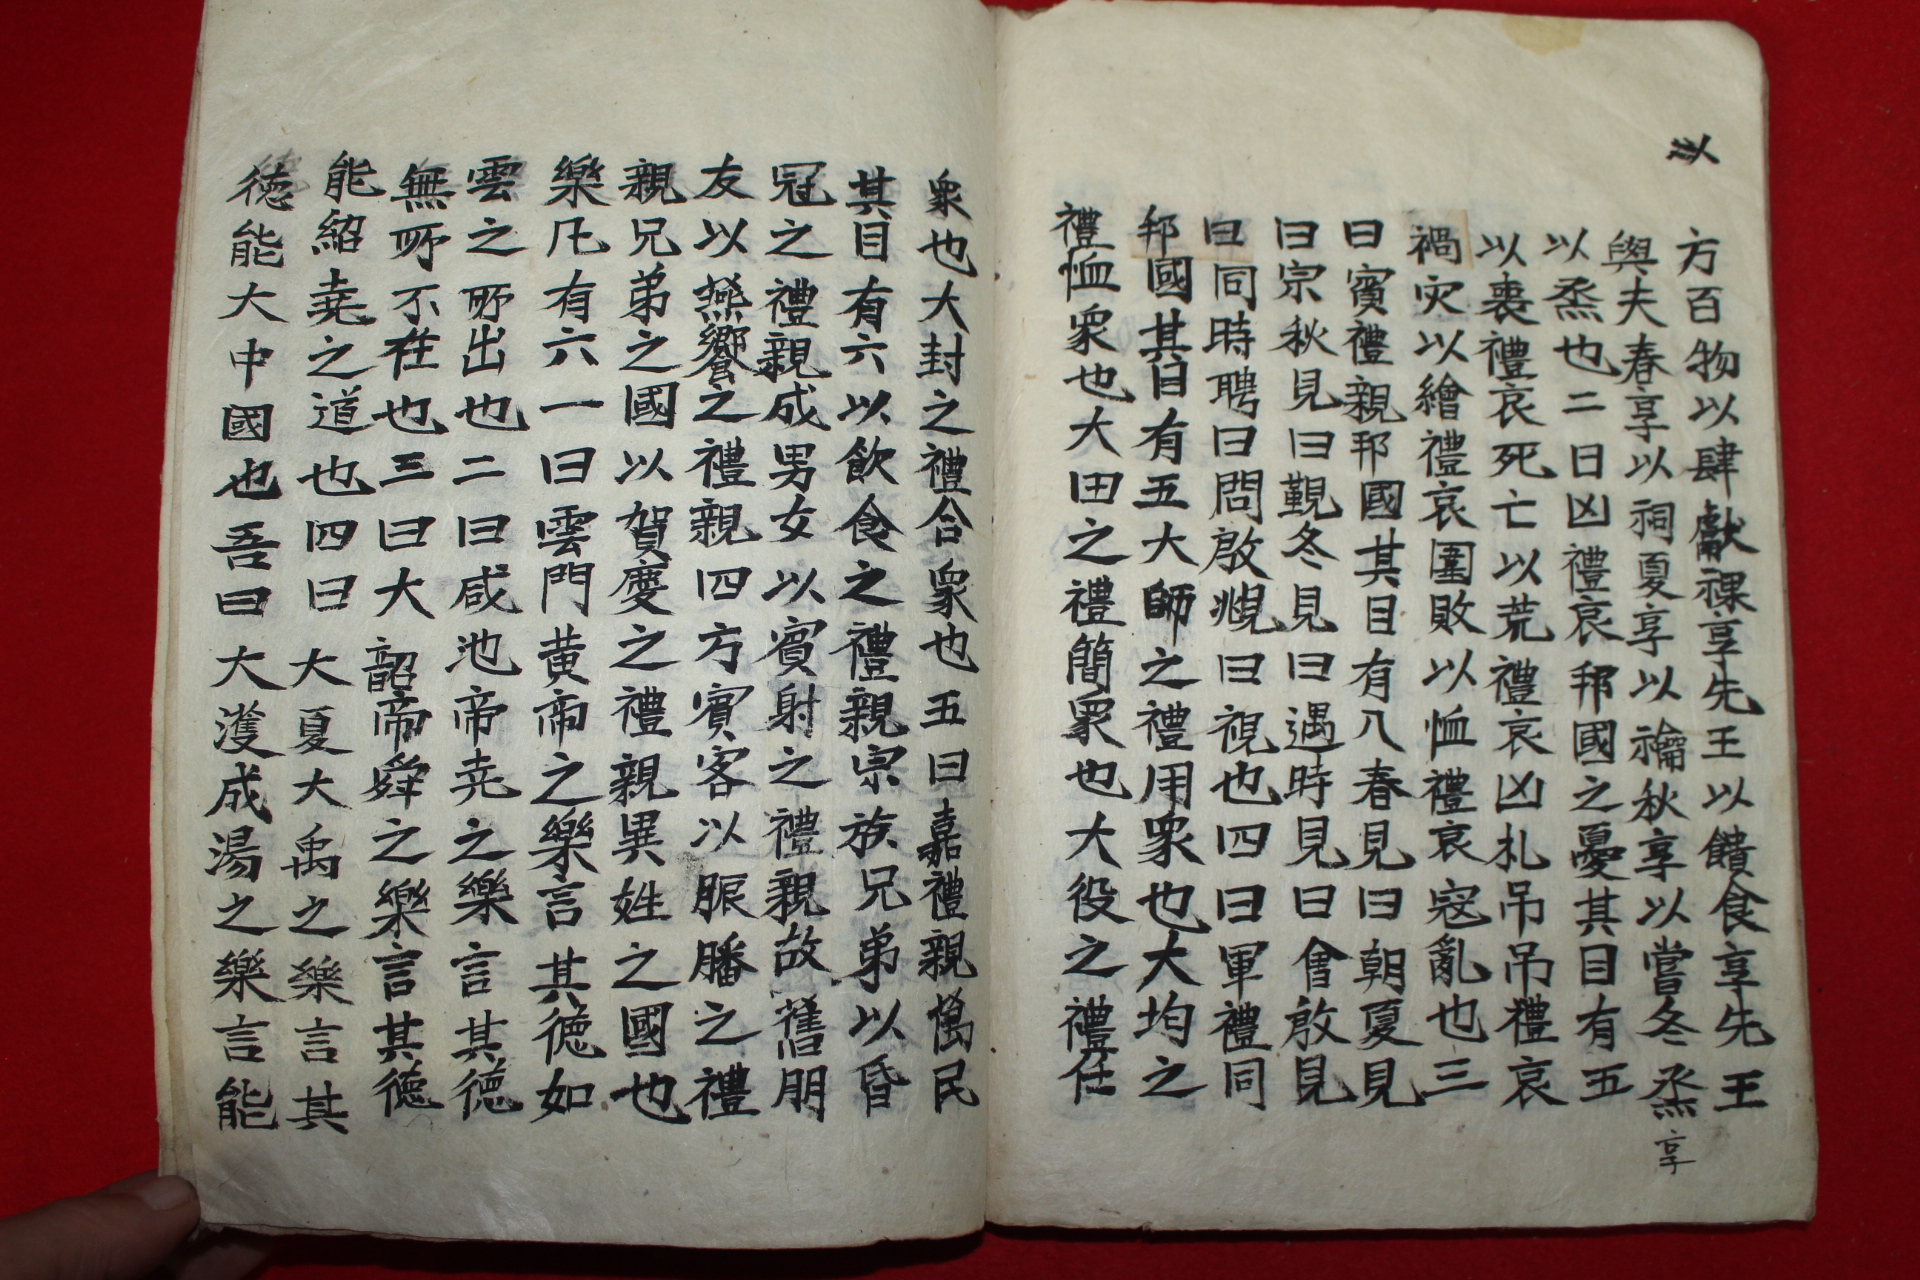 以
方百物以肆獻祼享先王以饋食享先王
與夫春享以祠夏享以禴秋享以嘗冬烝享
以烝也二曰凶禮哀邦國之憂其目有五
以喪禮哀死亡以荒禮哀凶札吊吊禮哀
禍灾以繪禮哀圍敗以恤禮哀寇亂也三
曰賓禮親邦國其目有八春見曰朝夏見
曰宗秋見曰覲冬見曰遇時見曰會啟見
曰同時聘曰問啟覜曰視也四曰軍禮同
邦國其目有五大師之禮用衆也大均之
禮恤衆也大田之禮簡衆也大役之禮任
衆也大封之禮合衆也五曰嘉禮親萬民
其目有六以飲食之禮親宗族兄弟以昏
冠之禮親成男女以賓射之禮親故舊朋
友以燕饗之禮親四方賓客以脤膰之禮
親兄弟之國以賀慶之禮親異姓之國也
樂凡有六一曰雲門黃帝之樂言其德如
雲之所出也二曰咸池帝堯之樂言其德
無所不在也三曰大韶帝舜之樂言其德
能紹堯之道也四曰大夏大禹之樂言其
德能大中國也吾曰大濩成湯之樂言能